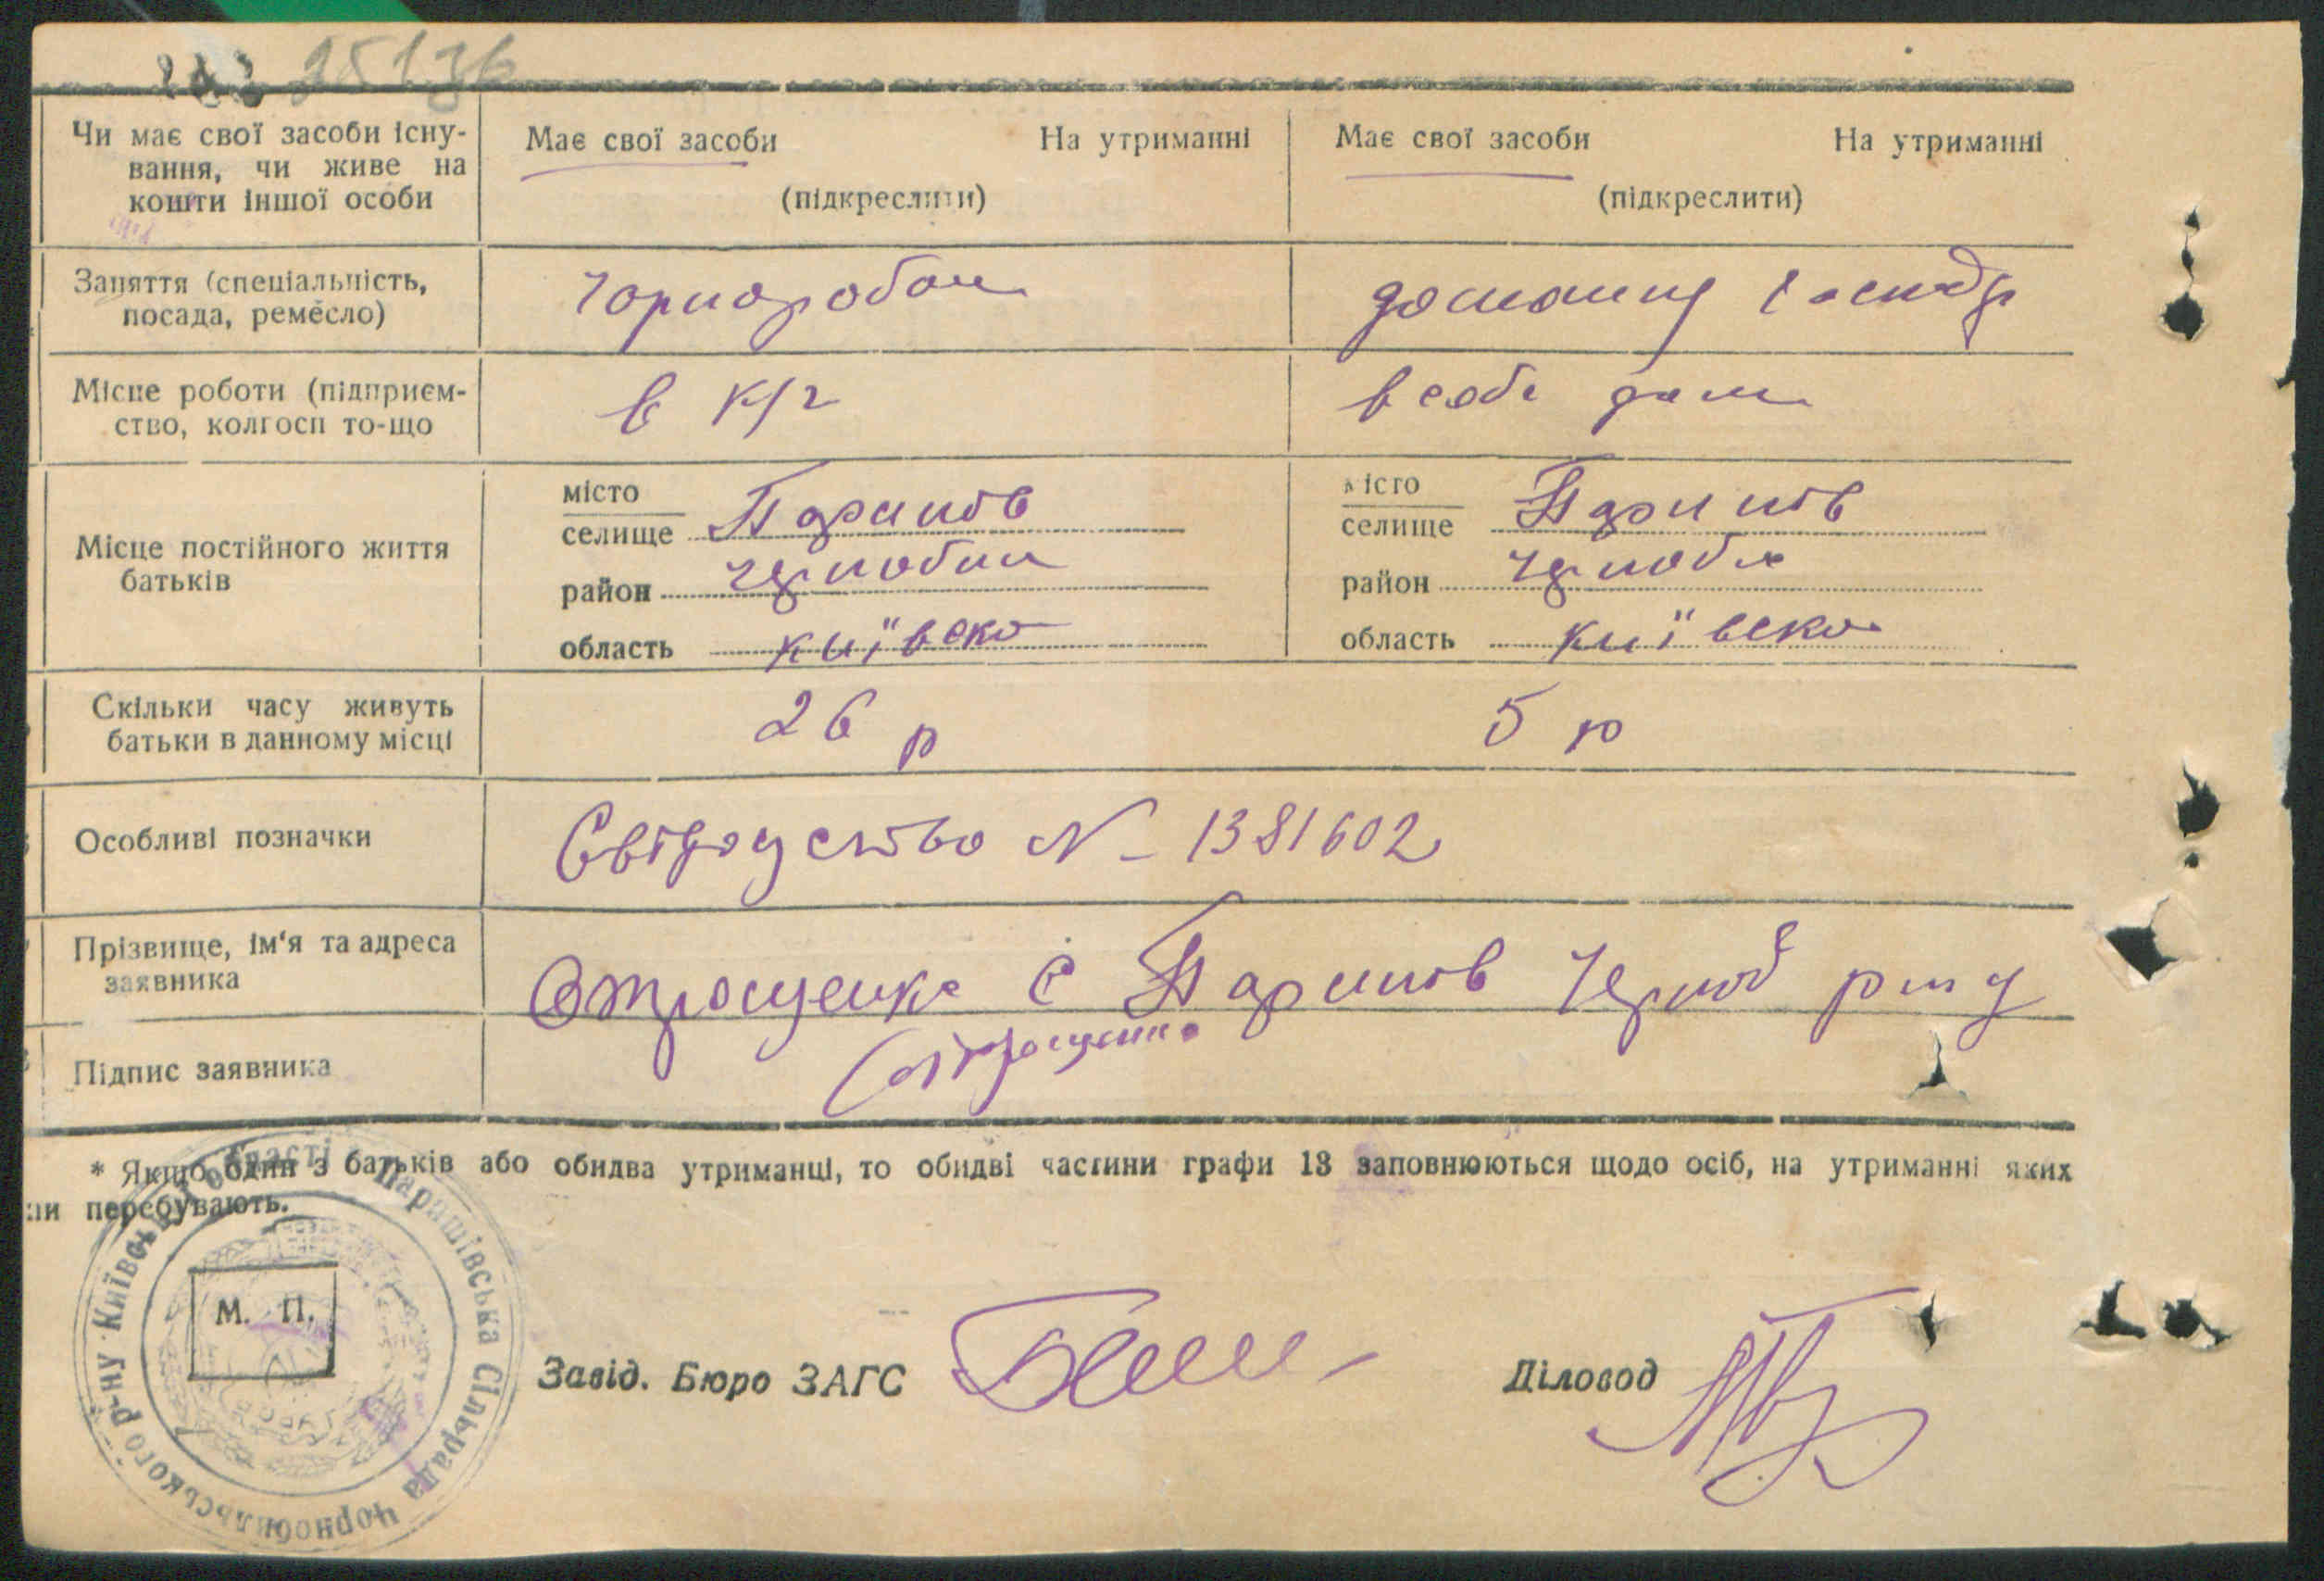 25136
Чи має свої засоби існу-
вання, чи живе на
кошти іншої особи
Має свої засоби На утриманні
(підкреслити)
Має свої засоби На утриманні
(підкреслити)
Заняття (спеціальність,
посада, ремесло)
Чорноробоч
домашнц господр
Місце роботи (підприєм-
ство, колгосп то-що
в к/г
в собе дома
Місце постійного життя
батьків
місто
селище Паришів
район Чернобил
область київско
місто
селище Паришів
район Чернобл
область київско
Скільки часу живуть
батьки в данному місці
26 р
5 р
Особливі позначки
Свідодство N- 1381602
Прізвище, ім'я та адреса
заявника
Отрощенко С Паришів Черноб р-ну
Підпис заявника
Отрощенко
* Якщо один з батьків або обидва утриманці, то обидві частини графи 13 заповнюються щодо осіб, на утриманні яких
ни перебувають.
М. П.
Паришівська Сільрада Чорнобильського р-ну Київської області
Завід. Бюро ЗАГС
Діловод